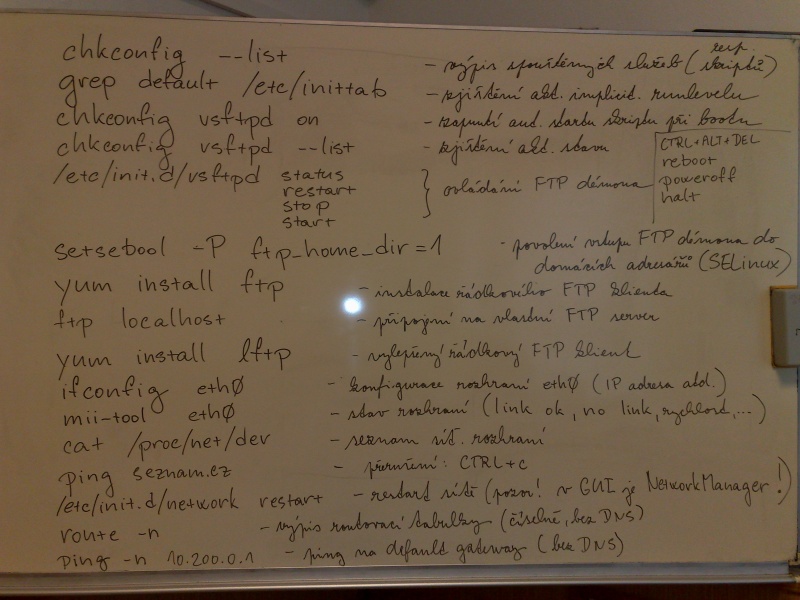 chkconfig --list - výpis spouštěných služeb (resp. skriptů)
grep default /etc/inittab - zjištění akt. implicit. runlevelu
chkconfig vsftpd on - zapnutí aut. startu skriptu při bootu
chkconfig vsftpd --list - zjištění akt. stavu
/etc/init.d/vsftpd status
restart
stop
start
} ovládání FTP démona
CTRL+ALT+DEL
reboot
poweroff
halt
setsebool -P ftp_home_dir=1 - povolení vstupu FTP démona do
domácích adresářů (SELinux)
yum install ftp - instalace řádkového FTP klienta
ftp localhost - připojení na vlastní FTP server
yum install lftp - vylepšený řádkový FTP klient
ifconfig eth0 - konfigurace rozhraní eth0 (IP adresa atd.)
mii-tool eth0 - stav rozhraní (link ok, no link, rychlost, ...)
cat /proc/net/dev - seznam síť. rozhraní
ping seznam.cz - přerušení: CTRL+c
/etc/init.d/network restart - restart sítě (pozor! v GUI je NetworkManager!)
route -n - výpis routovací tabulky (číselně, bez DNS)
ping -n 10.200.0.1 - ping na default gateway (bez DNS)